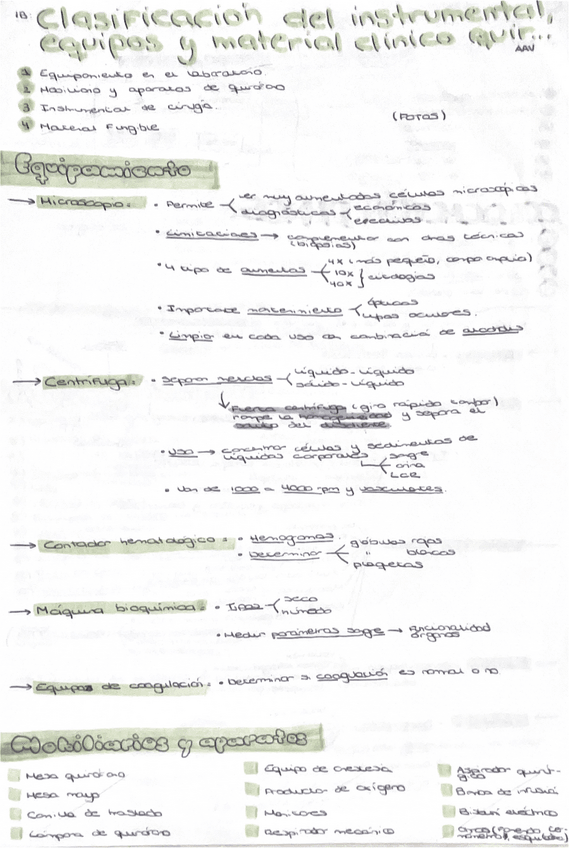 1B Clasificación del instrumental,
equipos y material clínico quir...
AAV
1 Equipamiento en el laboratorio.
2 Mobiliario y aparatos de quirófano
3 Instrumental de cirugía.
(FOTOS)
4 Material Fungible
Equipamiento
→ Microscopio: • Permite ver muy aumentadas células microscópicas
diagnósticos económicos
efectivos
• Limitaciones → complementar con otras técnicas
(biopsias)
• 4 tipo de aumentos 4x (más pequeño, campo amplio)
10x
40x } citologías
• Importante mantenimiento ópticas
lupas oculares.
• Limpiar en cada uso con combinación de
→ Centrífuga: • Separar mezclas Líquido-Líquido
sólido-Líquido
↓ Fuerza centrífuga (giro rápido
rompe la y separa el
del
• Uso → concentrar células y sedimentos de
líquidos corporales sangre
orina
LCR
• Van de 1000 = 4000 rpm y
→ Contador hematológico: • Hemogramas.
• Determinar glóbulos rojos
" blancos
plaquetas
→ Máquina bioquímica: • Tipos seco
húmedo
• Medir parámetros sangre → funcionalidad
órganos
→ Equipos de coagulación: • Determinar si coagulación es normal o no
Mobiliarios y aparatos
Mesa quirófano
Mesa mayo
Camilla de traslado
Lámpara de quirófano
Equipo de anestesia
Productor de oxígeno
Monitores
Respirador mecánico
Aspirador quirúr-
gico
Bomba de infusión
Bisturí eléctrico
Otros